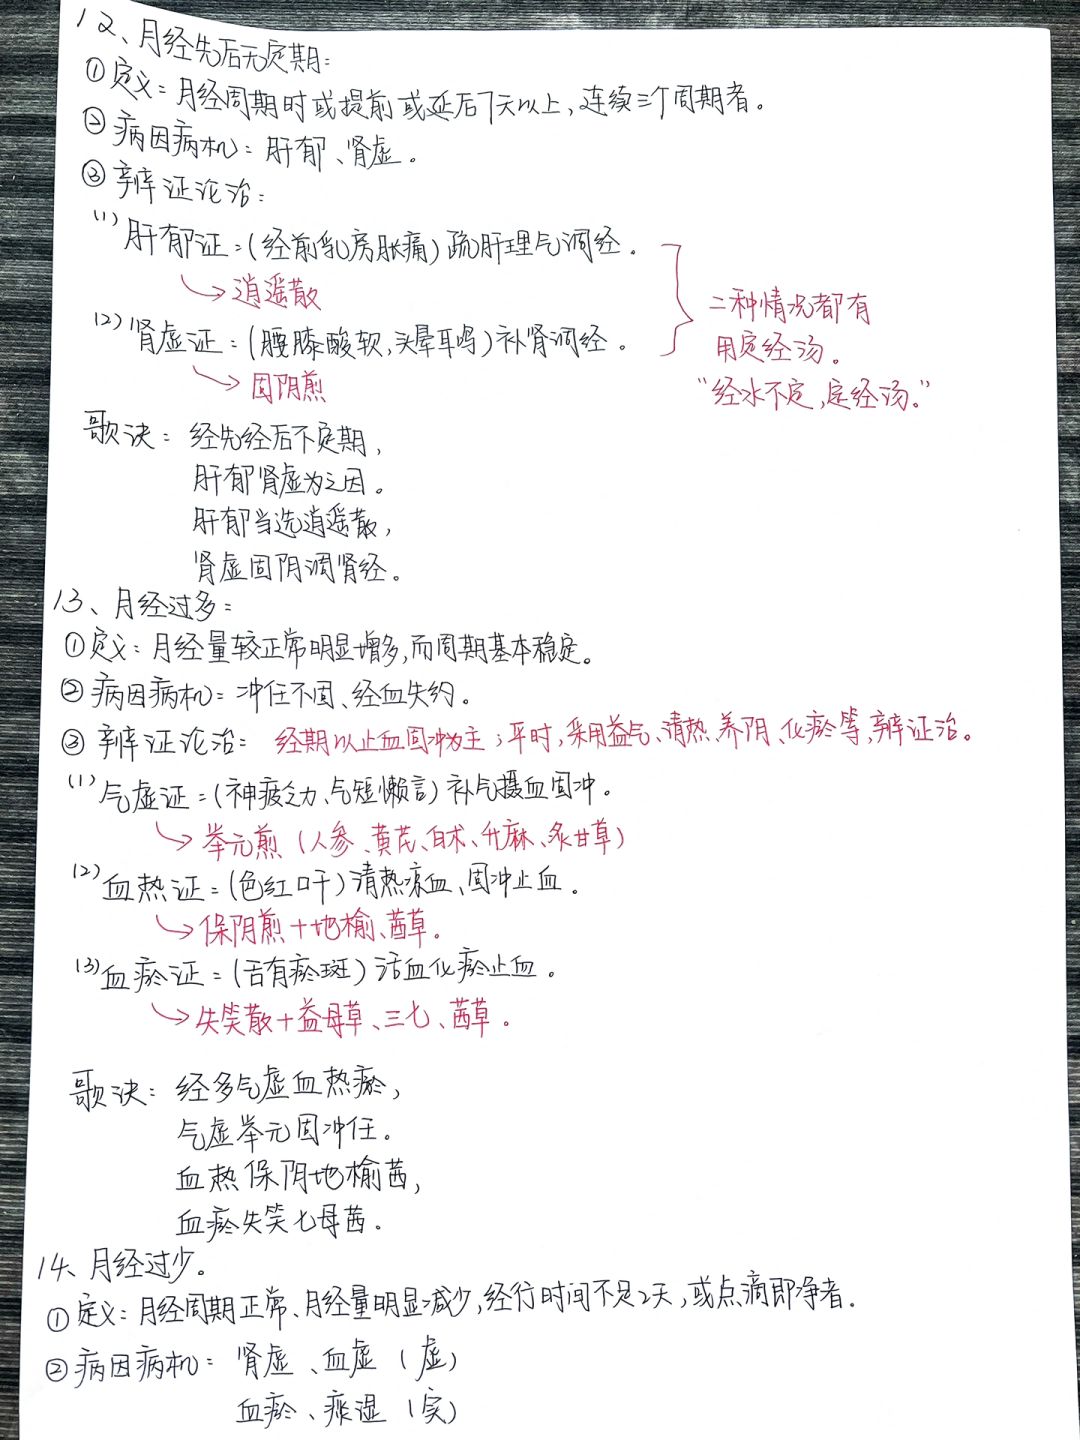 12、月经先后无定期:
①定义:月经周期时或提前或延后7天以上,连续三个周期者。
②病因病机:肝郁、肾虚。
③辨证论治:
(1)肝郁证:(经前乳房胀痛)疏肝理气调经。
→逍遥散
(2)肾虚证:(腰膝酸软,头晕耳鸣)补肾调经。
→固阴煎
二种情况都有
用定经汤。
“经水不定,定经汤。”
歌诀:经先经后不定期,
肝郁肾虚为之因。
肝郁当选逍遥散,
肾虚固阴调肾经。
13、月经过多:
①定义:月经量较正常明显增多,而周期基本稳定。
②病因病机:冲任不固、经血失约。
③辨证论治:经期以止血固冲为主;平时,采用益气、清热、养阴、化瘀等,辨证治。
(1)气虚证:(神疲乏力、气短懒言)补气摄血固冲。
→举元煎(人参、黄芪、白术、升麻、炙甘草)
(2)血热证:(色红口干)清热凉血、固冲止血。
→保阴煎+地榆、茜草。
(3)血瘀证:(舌有瘀斑)活血化瘀止血。
→失笑散+益母草、三七、茜草。
歌诀:经多气虚血热瘀,
气虚举元固冲任。
血热保阴地榆茜,
血瘀失笑七母茜.
14、月经过少。
①定义:月经周期正常、月经量明显减少,经行时间不足2天,或点滴即净者.
②病因病机:肾虚、血虚(虚)
血瘀、痰湿(实)